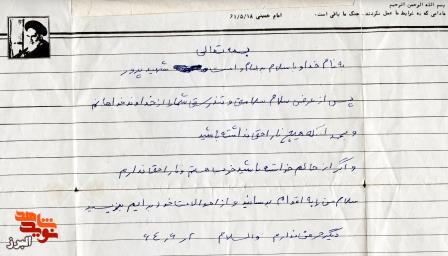 بسم الله الرحمن الرحیم
امام خمینی ۶۱/۵/۱۸
مادامی که به ضوابط ما عمل نکردند، جنگ ما باقی است.
بسمه تعالی
به نام خدا و با سلام به امام و امت شهید پرور
پس از عرض سلام سلامتی و تندرستی شما را از خداوند خواهانم
و امید است که هیچ ناراحتی نداشته باشید
و اگر از حالم خواسته باشید خوب هستم و ناراحتی ندارم
سلام من را به اقوام برسانید و از احوالات خود برایم بنویسید
دیگر حرفی ندارم والسلام
شاهد
نوید
البرز